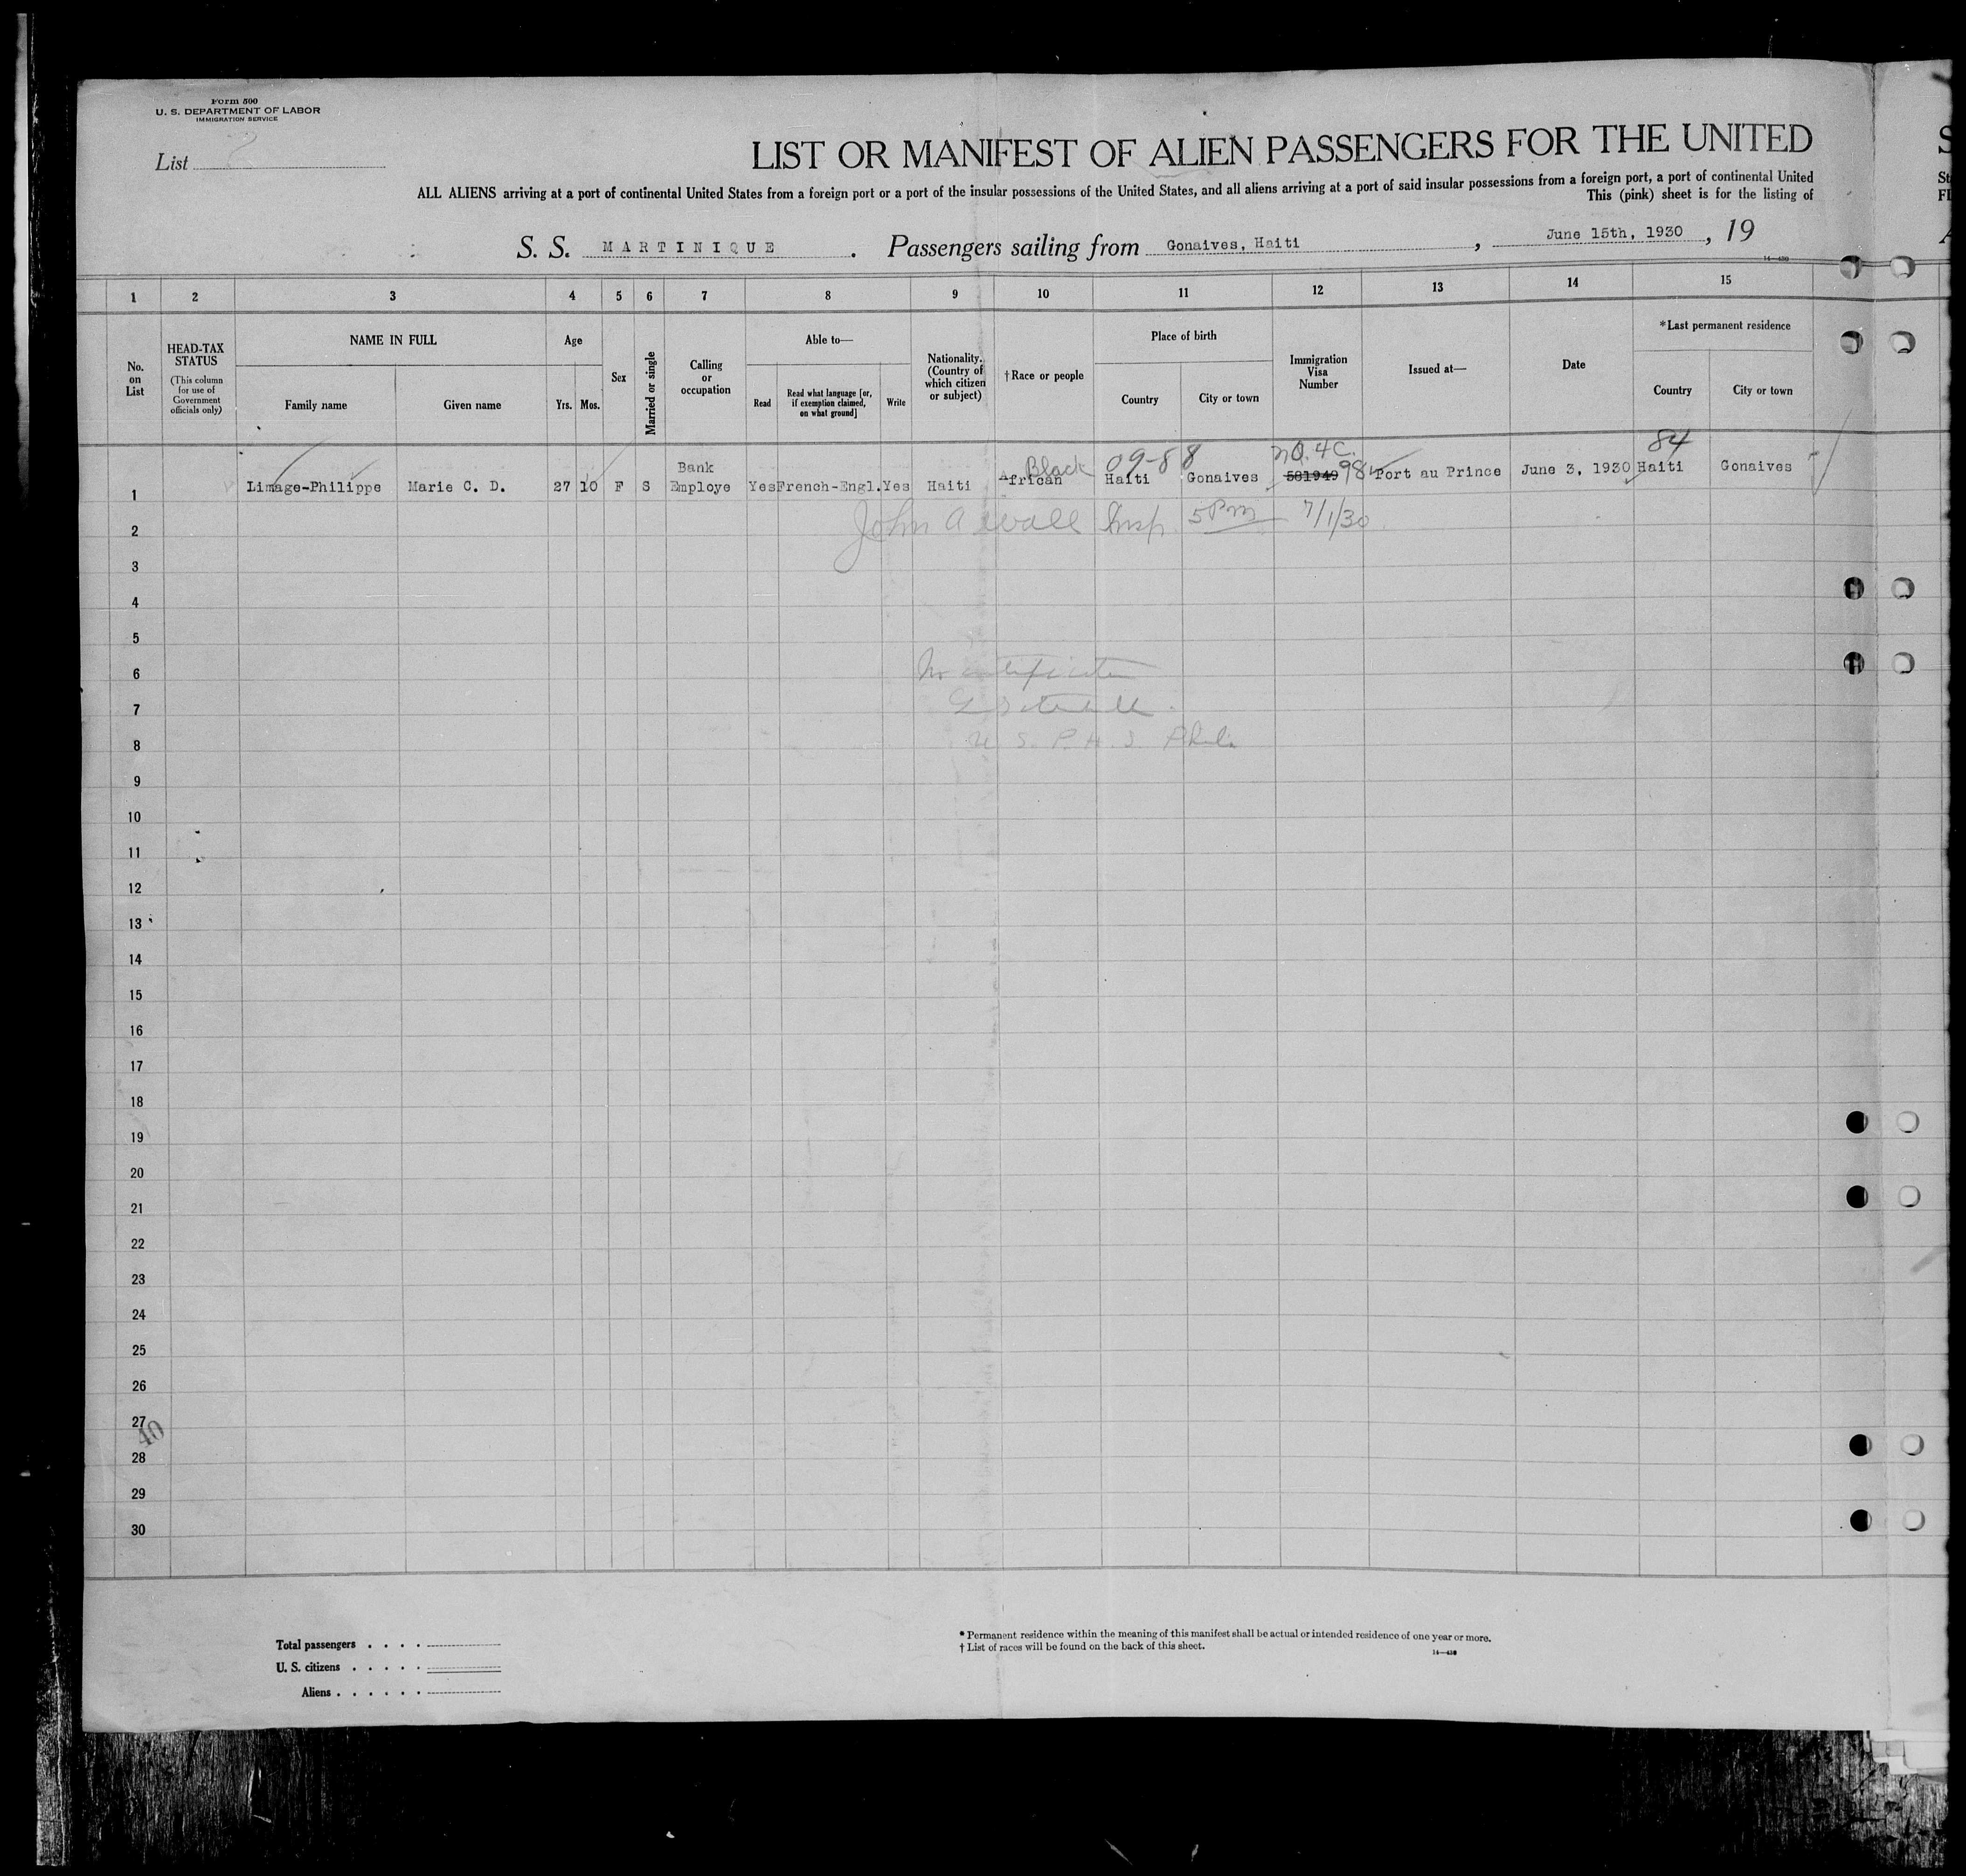 Form 500
U. S. DEPARTMENT OF LABOR
IMMIGRATION SERVICE
List
LIST OR MANIFEST OF ALIEN PASSENGERS FOR THE UNITED
ALL ALIENS arriving at a port of continental United States from a foreign port or a port of the insular possessions of the United States, and all aliens arriving at a port of said insular possessions from a foreign port, a port of continental United
This (pink) sheet is for the listing of
S. S. MARTINIQUE. Passengers sailing from Gonaives, Haiti, June 15th, 1930, 19
14—430
1 2 3 4 5 6 7 8 9 10 11 12 13 14 15
No. on List
HEAD-TAX STATUS
(This column for use of Government officials only)
NAME IN FULL
Family name Given name
Age
Yrs. Mos.
Sex
Married or single
Calling or occupation
Able to—
Read Read what language [or, if exemption claimed, on what ground] Write
Nationality. (Country of which citizen or subject)
†Race or people
Place of birth
Country City or town
Immigration Visa Number
Issued at—
Date
*Last permanent residence
Country City or town
Black 09-88 NQ.4C. 84
1 Limage-Philippe Marie C. D. 27 10 F S Bank Employe Yes French-Engl. Yes Haiti African Haiti Gonaives 581949 984 Port au Prince June 3, 1930 Haiti Gonaives
2 John A Wall Insp. 5 Pm 7/1/30
3
4
5
6 No
7
8 U. S. P. H. S. Phil.
9
10
11
12
13
14
15
16
17
18
19
20
21
22
23
24
25
26
27
40
28
29
30
Total passengers . . . .
U. S. citizens . . . . .
Aliens . . . . . .
* Permanent residence within the meaning of this manifest shall be actual or intended residence of one year or more.
† List of races will be found on the back of this sheet.
14—430